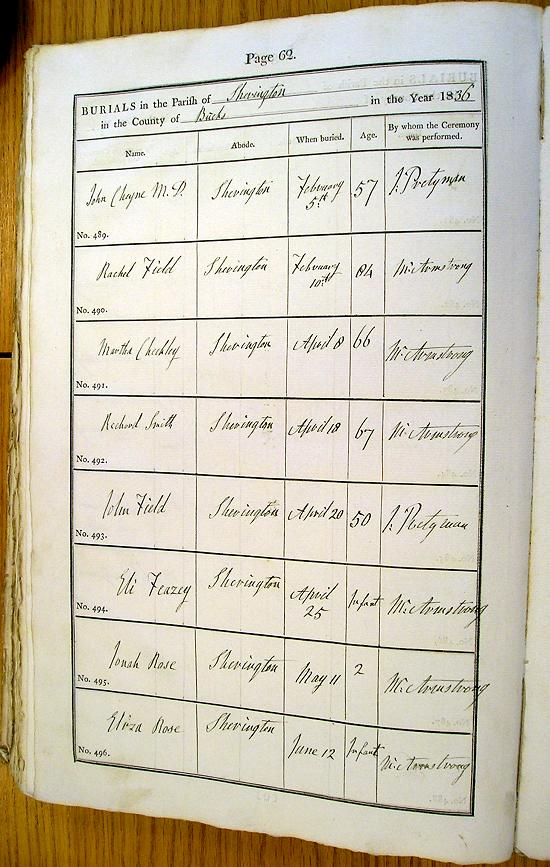 Page 62.
BURIALS in the Parish of Sherington
in the County of Bucks in the Year 1836
Name. Abode. When buried. Age. By whom the Ceremony was performed.
John Cheyne M.D. Sherington February 5th 57 J. Pretyman
No. 489.
Rachel Field Sherington February 10th 84 McArmstrong
No. 490.
Martha Checkley Sherington April 8 66 McArmstrong
No. 491.
Richard Smith Sherington April 18 67 McArmstrong
No. 492.
John Field Sherington April 20 50 J. Pretyman
No. 493.
Eli Feazey Sherington April 25 Infant McArmstrong
No. 494.
Jonah Rose Sherington May 11 2 McArmstrong
No. 495.
Eliza Rose Sherington June 12 Infant McArmstrong
No. 496.